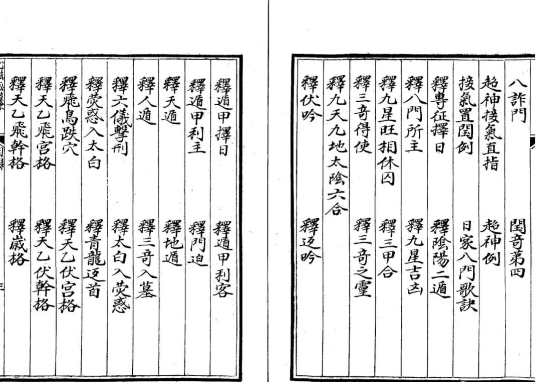 八詐門　閏奇第四
超神接氣直指　超神例
接氣置閏例　日家八門歌訣
釋專征擇日　釋陰陽二遁
釋八門所主　釋九星吉凶
釋九星旺相休囚　釋三甲合
釋三奇得使　釋三奇之靈
釋九天九地太陰六合
釋伏吟　釋返吟
釋遁甲擇日　釋遁甲利客
釋遁甲利主　釋門迫
釋天遁　釋地遁
釋人遁　釋三奇入墓
釋六儀擊刑　釋太白入熒惑
釋熒惑入太白　釋青龍返首
釋飛鳥跌穴　釋天乙伏宮格
釋天乙飛宮格　釋天乙伏幹格
釋天乙飛幹格　釋歲格